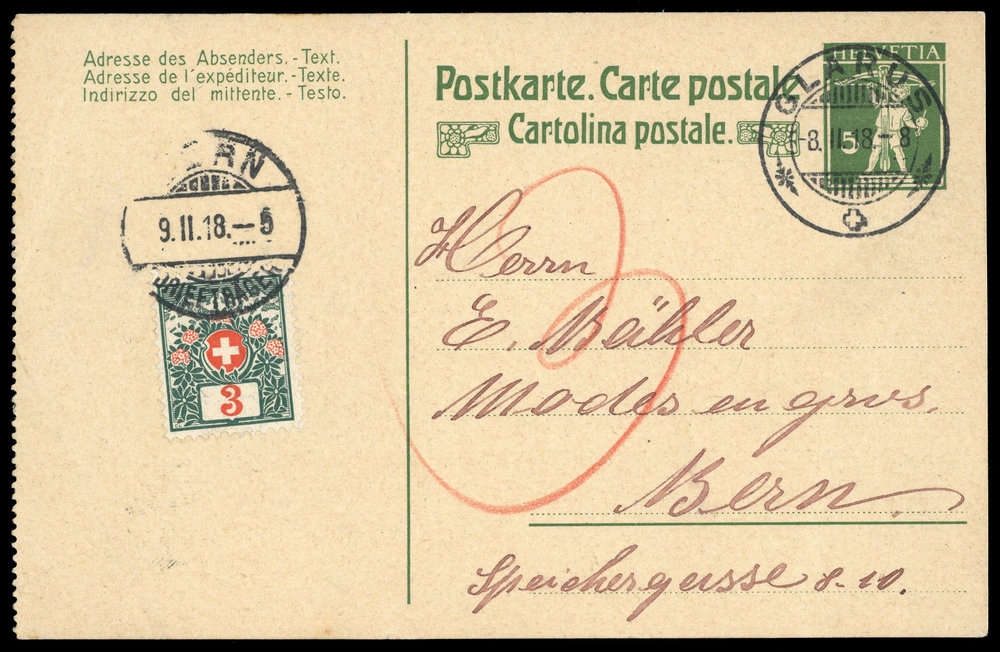 Adresse des Absenders.-Text.
Adresse de l'expéditeur.-Texte.
Indirizzo del mittente.-Testo.
Postkarte. Carte postale
Cartolina postale.
HELVETIA
5
GLARUS
-8.II.18.-8
BERN
9.II.18.-5
BRIEFTRÄGER
3
3
Herrn
E. Bähler
Modes en gros.
Bern.
Speichergasse 8-10.